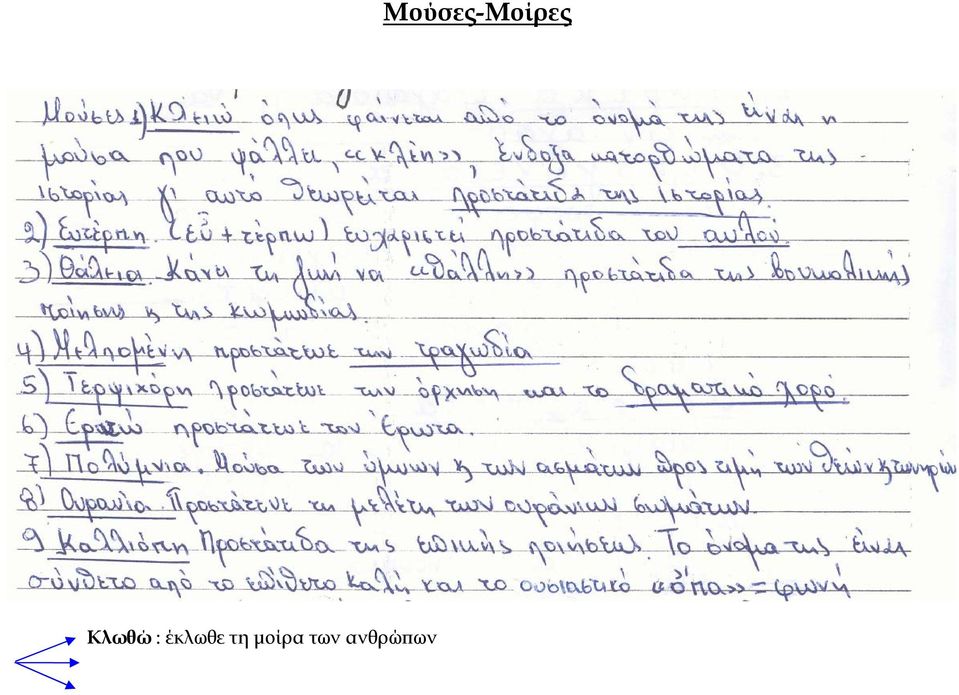 Μούσες-Μοίρες
Μούσες 1) Κλειώ όπως φαίνεται από το όνομά της είναι η
μούσα που ψάλλει, «κλέη», ένδοξα κατορθώματα της
ιστορίας γι αυτό θεωρείται προστάτιδα της Ιστορίας.
2) Ευτέρπη. (εὖ + τέρπω) ευχαριστεί προστάτιδα του αυλού.
3) Θάλεια. Κάνει τη ζωή να «θάλλη» προστάτιδα της βουκολικής
ποίησης κ της κωμωδίας.
4) Μελπομένη προστάτευε την τραγωδία
5) Τερψιχόρη προστάτευε την όρχηση και το δραματικό χορό.
6) Ερατώ προστάτευε τον Έρωτα.
7) Πολύμνια. Μούσα των ύμνων κ των ασμάτων προς τιμή των θεών κ των ηρώων
8) Ουρανία. Προστάτευε τη μελέτη των ουράνιων σωμάτων.
9 Καλλιόπη Προστάτιδα της επικής ποιήσεως. Το όνομα της είναι
σύνθετο από το επίθετο καλή και το ουσιαστικό «ὄπα» = φωνή
Κλωθώ : έκλωθε τη μοίρα των ανθρώπων